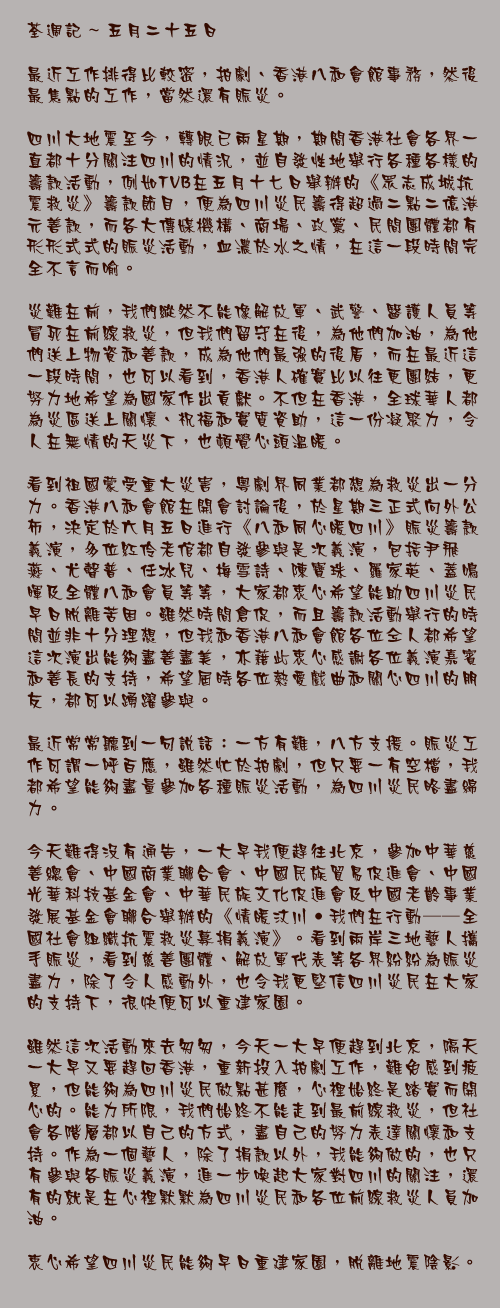 荃週記 ~ 五月二十五日
最近工作排得比較密，拍劇、香港八和會館事務，然後
最焦點的工作，當然還有賑災。
四川大地震至今，轉眼已兩星期，期間香港社會各界一
直都十分關注四川的情況，並自發性地舉行各種各樣的
籌款活動，例如TVB在五月十七日舉辦的《眾志成城抗
震救災》籌款節目，便為四川災民籌得超過二點二億港
元善款，而各大傳媒機構、商場、政黨、民間團體都有
形形式式的賑災活動，血濃於水之情，在這一段時間完
全不言而喻。
災難在前，我們縱然不能像解放軍、武警、醫護人員等
冒死在前線救災，但我們留守在後，為他們加油，為他
們送上物資和善款，成為他們最強的後盾，而在最近這
一段時間，也可以看到，香港人確實比以往更團結，更
努力地希望為國家作出貢獻。不但在香港，全球華人都
為災區送上關懷、祝福和實質資助，這一份凝聚力，令
人在無情的天災下，也頓覺心頭溫暖。
看到祖國蒙受重大災害，粵劇界同業都想為救災出一分
力。香港八和會館在開會討論後，於星期三正式向外公
布，決定於六月五日進行《八和同心暖四川》賑災籌款
義演，多位紅伶老倌都自發參與是次義演，包括尹飛
燕、尤聲普、任冰兒、梅雪詩、陳寶珠、羅家英、蓋鳴
暉及全體八和會員等等，大家都衷心希望能助四川災民
早日脫離苦困。雖然時間倉促，而且籌款活動舉行的時
間並非十分理想，但我和香港八和會館各位仝人都希望
這次演出能夠盡善盡美，亦藉此衷心感謝各位義演嘉賓
和善長的支持，希望屆時各位熱愛戲曲和關心四川的朋
友，都可以踴躍參與。
最近常常聽到一句說話：一方有難，八方支援。賑災工
作可謂一呼百應，雖然忙於拍劇，但只要一有空檔，我
都希望能夠盡量參加各種賑災活動，為四川災民略盡綿
力。
今天難得沒有通告，一大早我便趕往北京，參加中華慈
善總會、中國商業聯合會、中國民族貿易促進會、中國
光華科技基金會、中華民族文化促進會及中國老齡事業
發展基金會聯合舉辦的《情暖汶川•我們在行動——全
國社會組織抗震救災募捐義演》。看到兩岸三地藝人攜
手賑災，看到慈善團體、解放軍代表等各界紛紛為賑災
盡力，除了令人感動外，也令我更堅信四川災民在大家
的支持下，很快便可以重建家園。
雖然這次活動來去匆匆，今天一大早便趕到北京，隔天
一大早又要趕回香港，重新投入拍劇工作，難免感到疲
累，但能夠為四川災民做點甚麼，心裡始終是踏實而開
心的。能力所限，我們始終不能走到最前線救災，但社
會各階層都以自己的方式，盡自己的努力表達關懷和支
持。作為一個藝人，除了捐款以外，我能夠做的，也只
有參與各賑災義演，進一步喚起大家對四川的關注，還
有的就是在心裡默默為四川災民和各位前線救災人員加
油。
衷心希望四川災民能夠早日重建家園，脫離地震陰影。